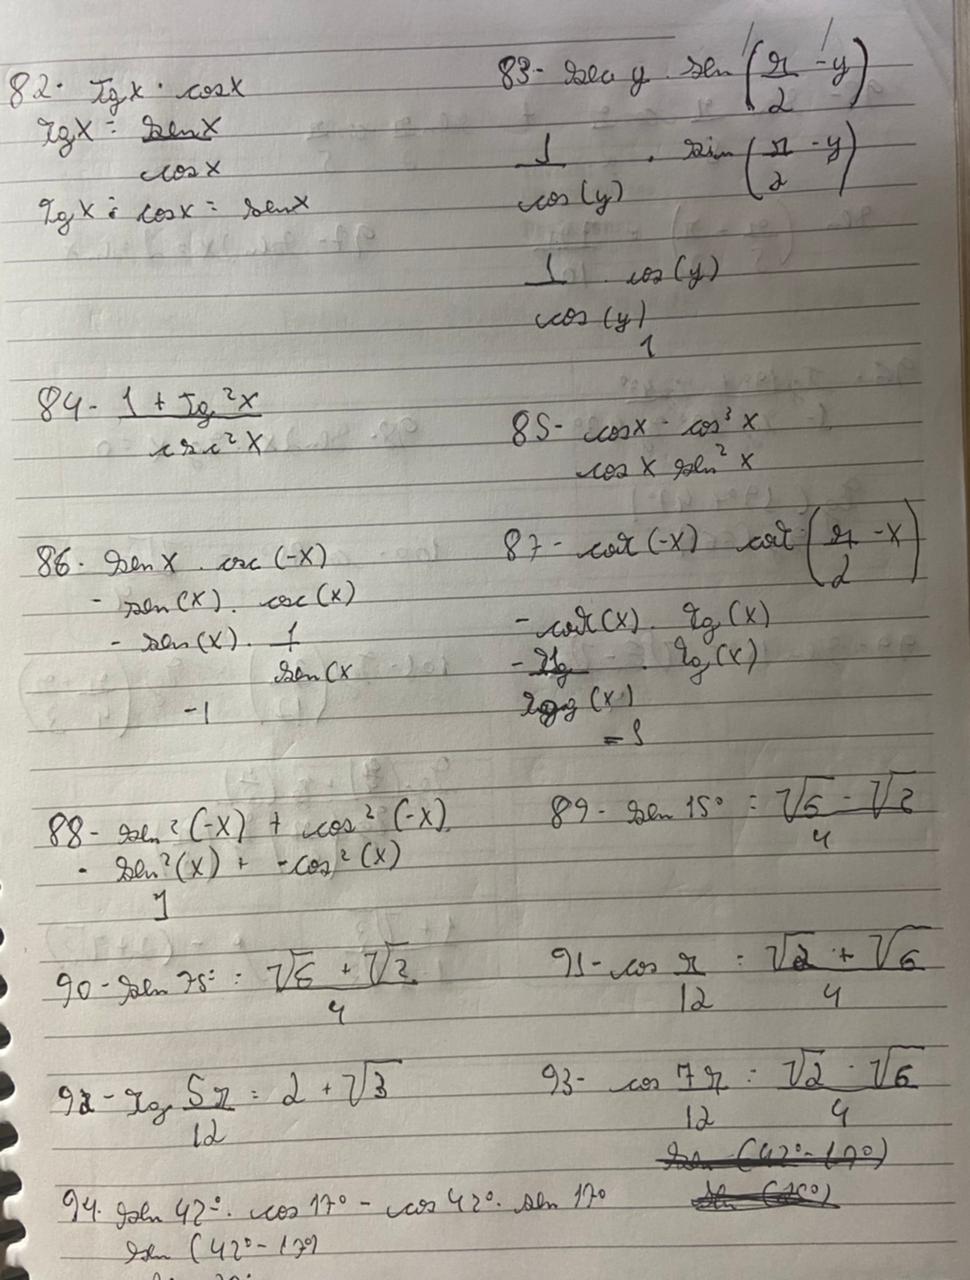 82. Tgx · cosx
TgX = senX
cosX
TgX · cosX = senX
83- sec y · sen (π/2 - y)
1 · sin (π/2 - y)
cos(y)
1 · cos(y)
cos(y)
1
84- 1 + Tg²X
csc²X
85- cosx - cos³x
cosx sen²x
86- senX · csc(-X)
- sen(X) · csc(X)
- sen(X) · 1
sen(X
-1
87- cot(-X) cot (π/2 - X)
- cot(X) · Tg(X)
· Tg(X)
(X)
88- sen²(-X) + cos²(-X)
- sen²(X) + -cos²(X)
1
89- sen 15° = √6 - √2
4
90- sen 75° = √6 + √2
4
91- cos π = √2 + √6
12 4
92- Tg 5π = 2 + √3
12
93- cos 7π = √2 - √6
12 4
94. sen 42° · cos 17° - cos 42° · sen 17°
sen (42° - 17°)